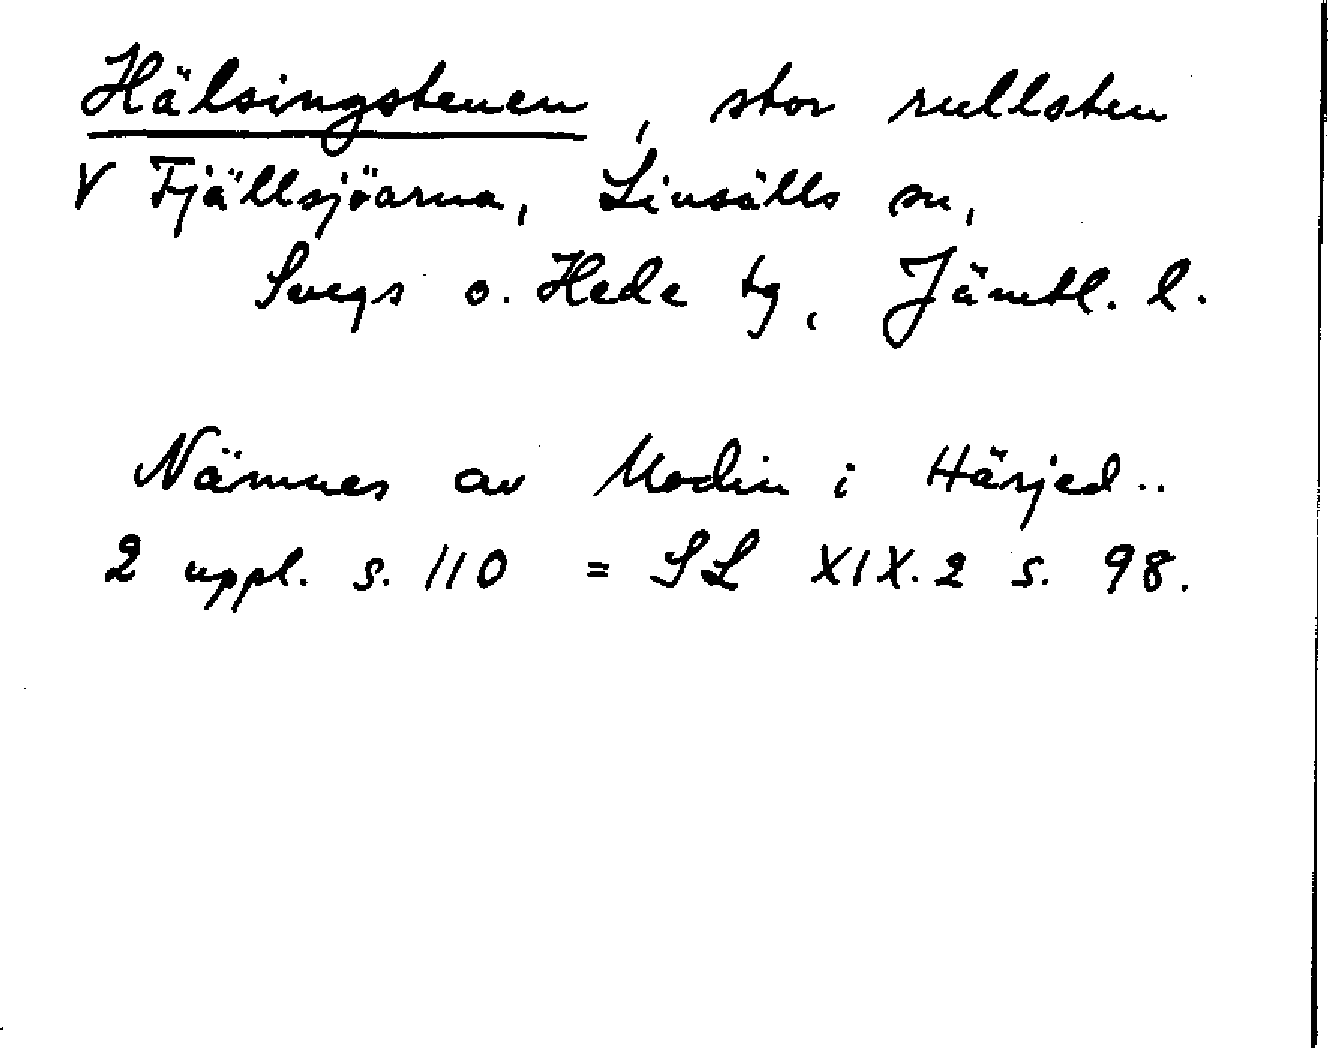 Hälsingstenen, stor rullsten
V Fjällsjöarna, Linsälls sn,
Svegs o. Hede tg, Jämtl. l.
Nämnes av Modin i Härjed..
2 uppl. s. 110 = SL XIX.2 s. 98.